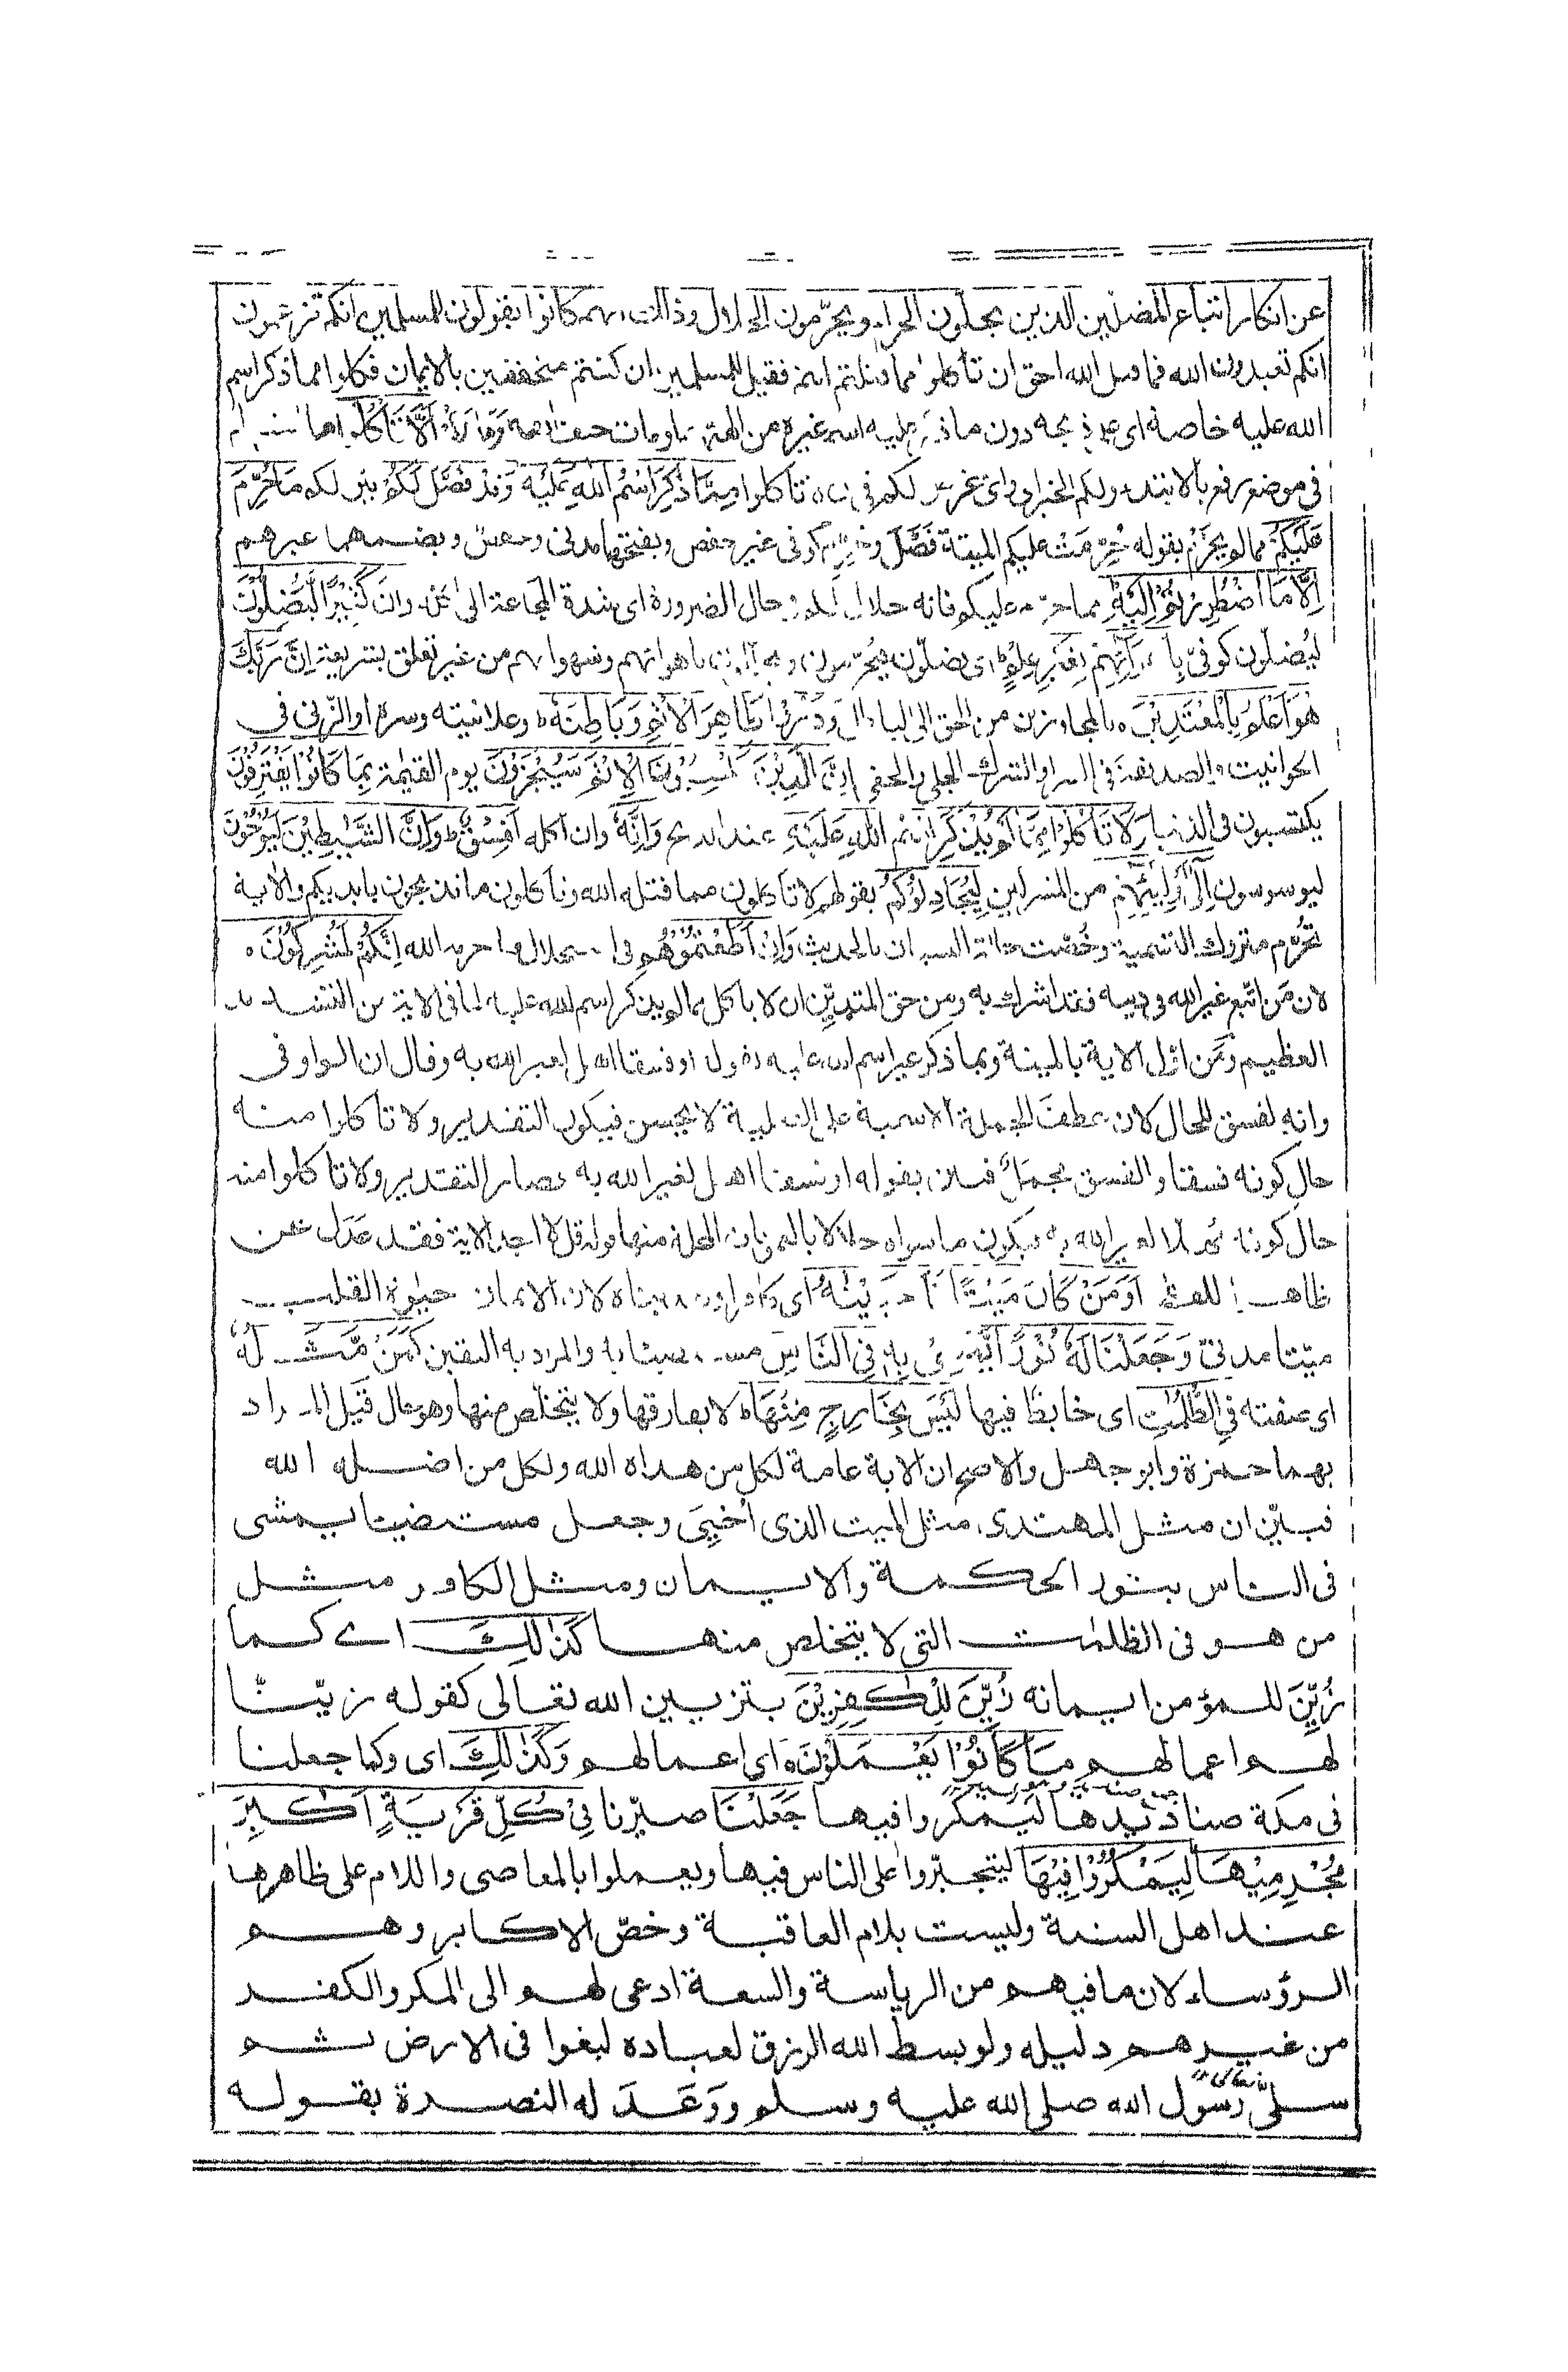 عن انكار اتباع المضلّين الذين يحلّون الحرام ويحرّمون الحلال وذالك انهم كانوا يقولون للمسلمين انكم تزعمون
انكم تعبدون الله فما قتل الله احق ان تأكلوا مما قتلتم انتم فقيل للمسلمين ان كنتم متحققين بالايمان فكلوا مما ذكر اسم
الله عليه خاصة اى على ذبحه دون ما ذكر عليه اسم غيره من الهتهم او مات حتف انفه وَمَا لَكُمْ اَلَّا تَأْكُلُوْا
فى موضع رفع بالابتداء ولكم الخبر اى واى غرض لكم فى ان لا تأكلوا مِمَّا ذُكِرَ اسْمُ اللهِ عَلَيْهِ وَقَدْ فَصَّلَ لَكُمْ بين لكم مَا حُرِّمَ
عَلَيْكُمْ مما لم يحرّم بقوله حُرّمت عليكم الميتة فَصَّلَ وحُرِّم كوفى غير حفص وبفتحهما مدنى وحفص وبضمهما غيرهم
اِلَّا مَا اضْطُرِرْتُمْ اِلَيْهِ مما حرّم عليكم فانه حلال لكم فى حال الضرورة اى شدة المجاعة الى اكله وَاِنَّ كَثِيْرًا لَّيُضِلُّوْنَ
لَيُضلّون كوفىّ بِاَهْوَآئِهِمْ بِغَيْرِ عِلْمٍ اى يضلّون فيحرّمون ويحلّلون باهوائهم وشهواتهم من غير تعلق بشريعة اِنَّ رَبَّكَ
هُوَ اَعْلَمُ بِالْمُعْتَدِيْنَ بالمجاوزين من الحق الى الباطل وَذَرُوْا ظَاهِرَ الْاِثْمِ وَبَاطِنَهٗ وعلانيته وسره او الزنى فى
الحوانيت والصديقة فى السر او الشرك الجلى والخفى اِنَّ الَّذِيْنَ يَكْسِبُوْنَ الْاِثْمَ سَيُجْزَوْنَ يوم القيٰمة بِمَا كَانُوْا يَقْتَرِفُوْنَ
يكتسبون فى الدنيا وَلَا تَأْكُلُوْا مِمَّا لَمْ يُذْكَرِ اسْمُ اللهِ عَلَيْهِ عند الذبح وَاِنَّهٗ وان اكله لَفِسْقٌ وَاِنَّ الشَّيٰطِيْنَ لَيُوْحُوْنَ
ليوسوسون اِلٰى اَوْلِيَآئِهِمْ من المشركين لِيُجَادِلُوْكُمْ بقولهم لا تأكلون مما قتله الله وتأكلون ما تذبحون بايديكم والاية
تحرّم متروك التسمية وخُصّت حالة النسيان بالحديث وَاِنْ اَطَعْتُمُوْهُمْ فى استحلال ما حرمه الله اِنَّكُمْ لَمُشْرِكُوْنَ
لان مَن اتبع غير الله فى دينه فقد اشرك به ومن حق المتديّن ان لا يأكل مما لم يذكر اسم الله عليه لما فى الاية من التشديد
العظيم ومَن اوّل الاية بالميتة وبما ذكر غير اسم الله عليه لقوله او فسقا اهل لغير الله به وقال ان الواو فى
وانه لفسق للحال لان عطف الجملة الاسمية على الفعلية لا يحسن فيكون التقدير ولا تأكلوا منه
حال كونه فسقا والفسق مجملٌ فبين بقوله او فسقا اهل لغير الله به فصار التقدير ولا تاكلوا منه
حال كونه مُهلّا لغير الله به فيكون ما سواه حلالا بالعمومات المحلة منها قوله قل لا اجد الاية فقد عَدَل عن
ظاهر اللفظ اَوَمَنْ كَانَ مَيْتًا فَاَحْيَيْنٰهُ اى كافرا فهديناه لان الايمان حيٰوة القلب
ميّتا مدنىّ وَجَعَلْنَا لَهٗ نُوْرًا يَّمْشِىْ بِهٖ فِى النَّاسِ مستضيئا به والمراد به اليقين كَمَنْ مَّثَلُهٗ
اى صفته فِى الظُّلُمٰتِ اى خابطًا فيها لَيْسَ بِخَارِجٍ مِّنْهَا لا يفارقها ولا يتخلّص منها وهو حال قيل المراد
بهما حمزة وابو جهل والاصح ان الاية عامة لكل من هداه الله ولكل من اضله الله
فبيّن ان مثل المهتدى مثل الميت الذى اُحْيِىَ وجعل مستضيئا يمشى
فى الناس بنور الحكمة والايمان ومثل الكافر مثل
من هو فى الظلمٰت التى لا يتخلص منها كَذٰلِكَ اے كما
زُيِّنَ للمؤمن ايمانه زُيِّنَ لِلْكٰفِرِيْنَ بتزيين الله تعالى كقوله زيّنّا
لهم اعمالهم مَا كَانُوْا يَعْمَلُوْنَ اى اعمالهم وَكَذٰلِكَ اى وكما جعلنا
فى مكة صناديدها لِيمكروا فيها جَعَلْنَا صيّرنا فِىْ كُلِّ قَرْيَةٍ اَكٰبِرَ
مُجْرِمِيْهَا لِيَمْكُرُوْا فِيْهَا ليتجبّروا على الناس فيها ويعملوا بالمعاصى واللام على ظاهرها
عند اهل السنة وليست بلام العاقبة وخصّ الاكابر وهم
الرؤساء لان ما فيهم من الرياسة والسعة ادعى لهم الى المكر والكفر
من غيرهم دليله ولو بسط الله الرزق لعباده لبغوا فى الارض ثم
سلى رسول الله صلى الله عليه وسلم ووَعَدَ له النصرة بقوله